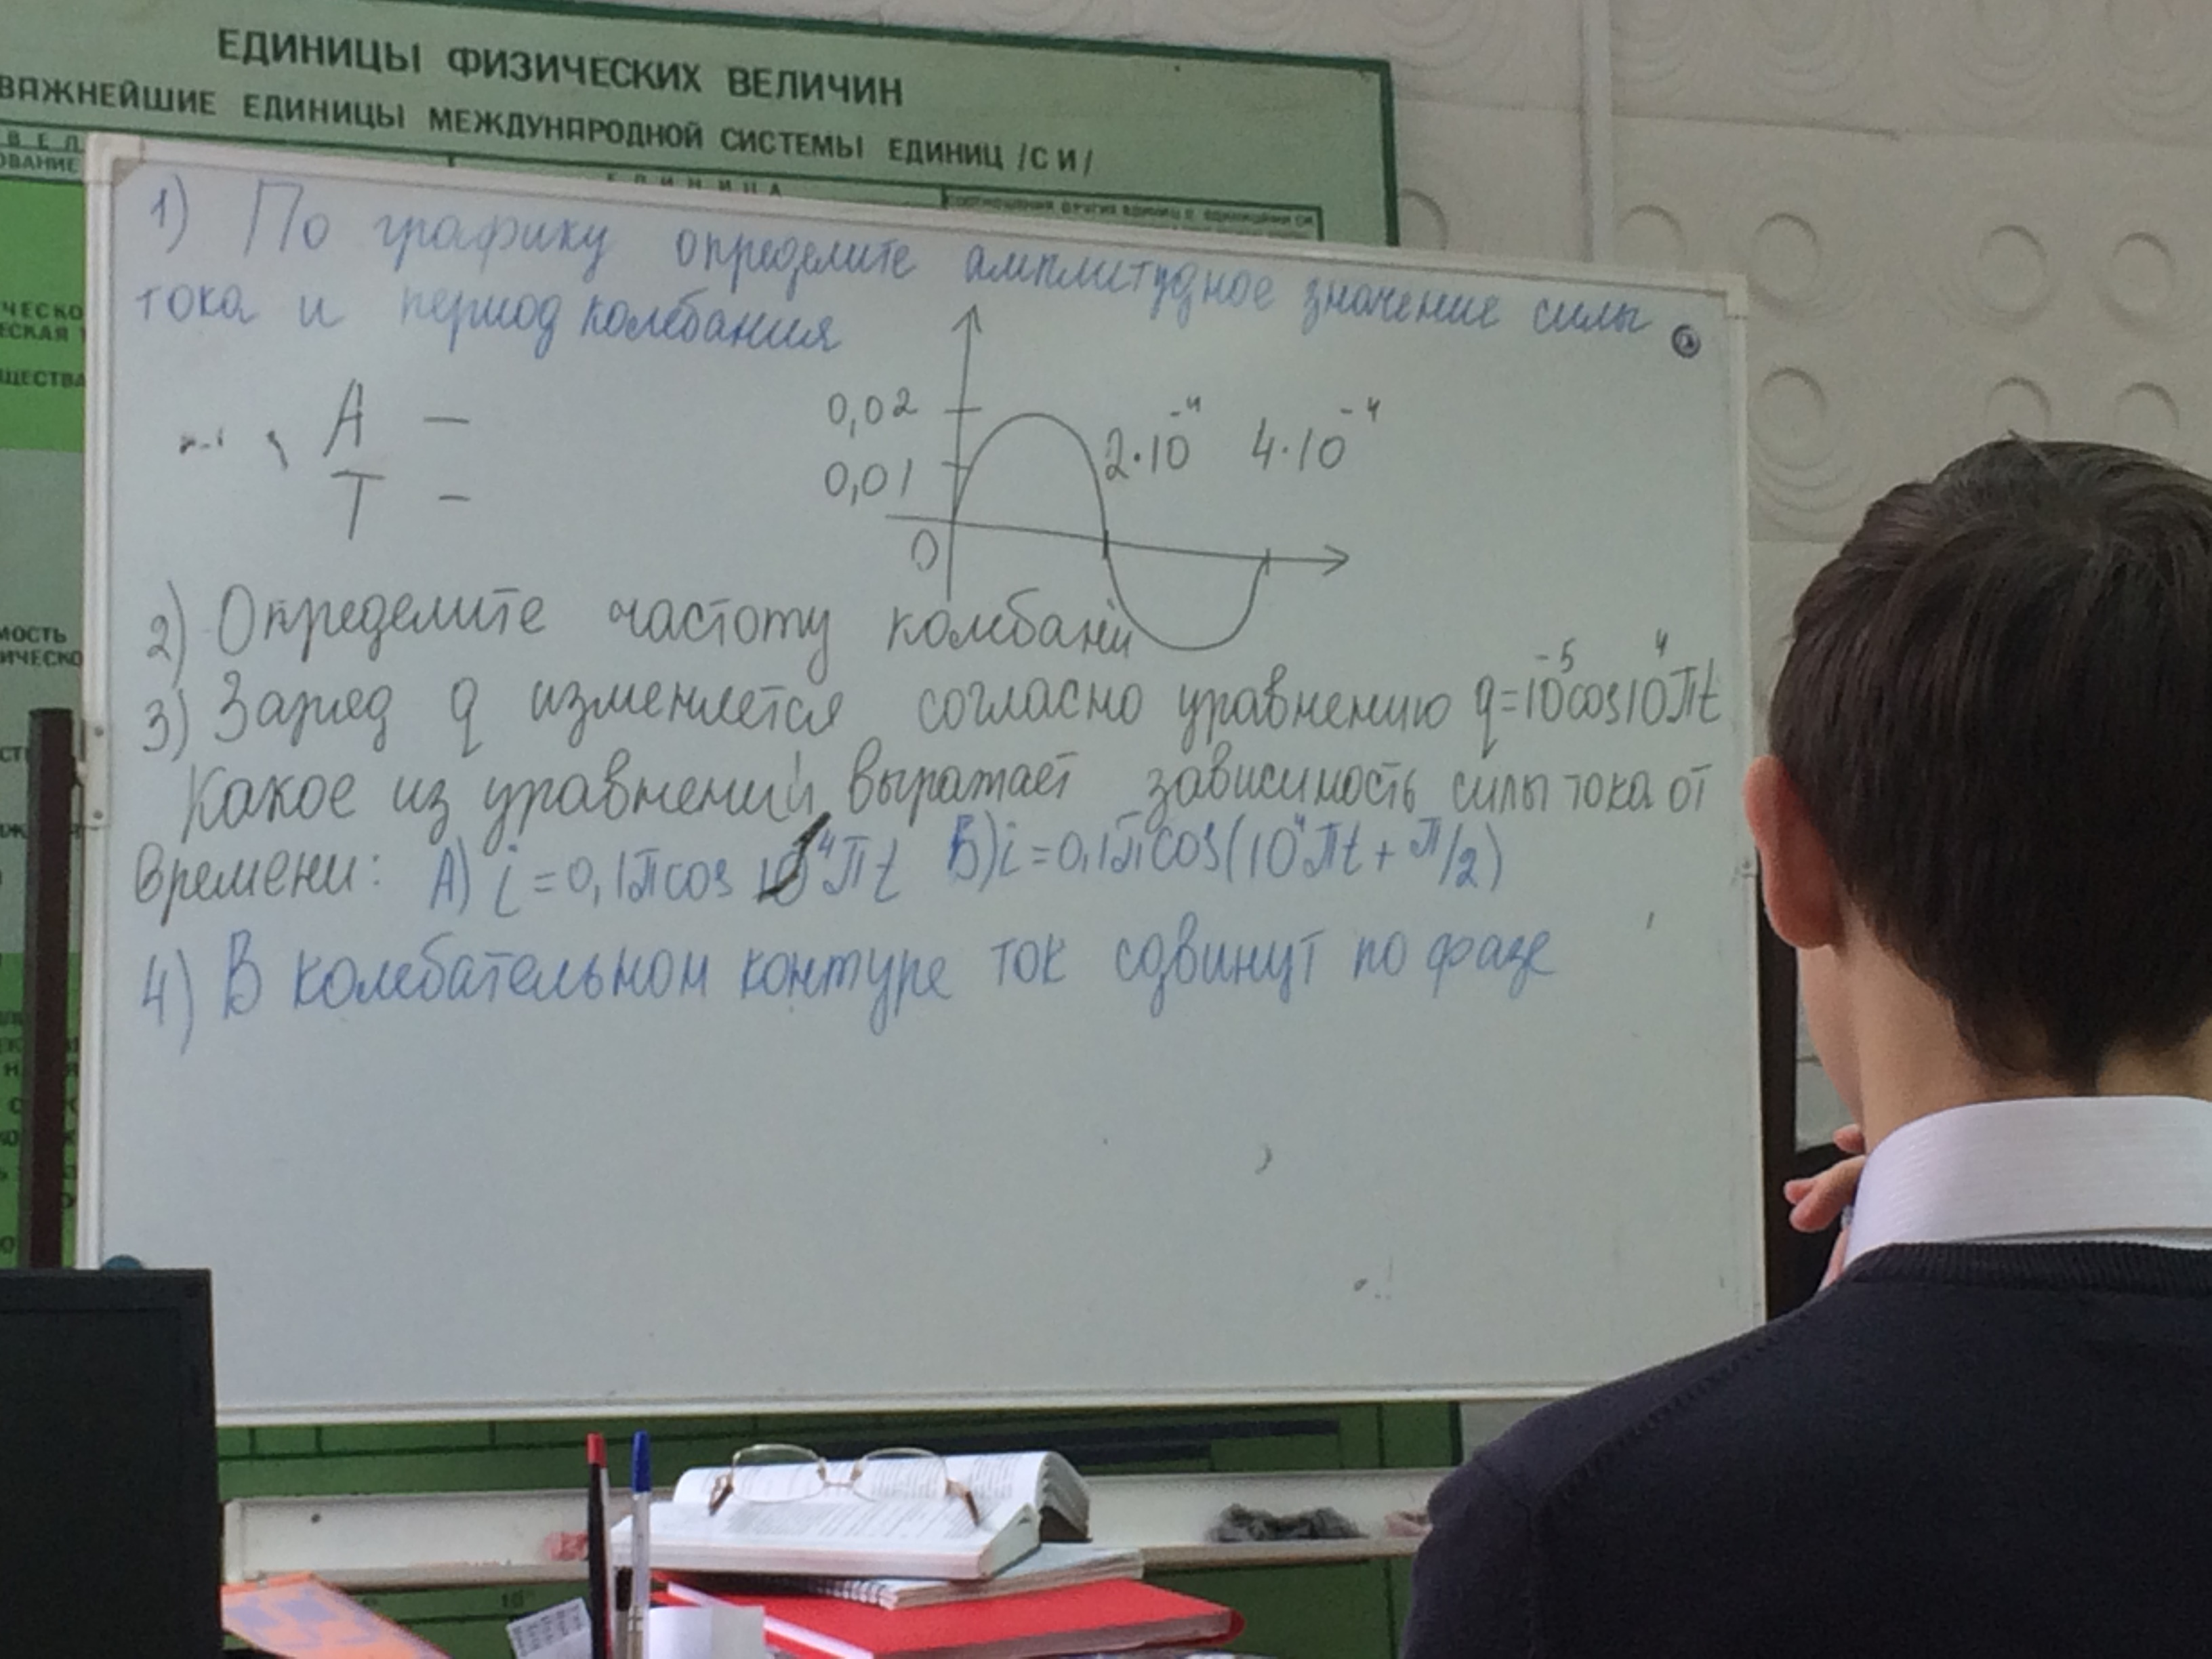 ЕДИНИЦЫ ФИЗИЧЕСКИХ ВЕЛИЧИН
ВАЖНЕЙШИЕ ЕДИНИЦЫ МЕЖДУНАРОДНОЙ СИСТЕМЫ ЕДИНИЦ /СИ/
ЕДИНИЦА
1) По графику определите амплитудное значение силы
тока и период колебания
A –
T –
0,02
0,01
0
2·10⁻⁴ 4·10⁻⁴
2) Определите частоту колебани
3) Заряд q изменяется согласно уравнению q=10⁻⁵cos10⁴πt
Какое из уравнений выражает зависимость силы тока от
времени: А) i=0,1πcos 10⁴πt Б) i=0,1πcos(10⁴πt+π/2)
4) В колебательном контуре ток сдвинут по фазе